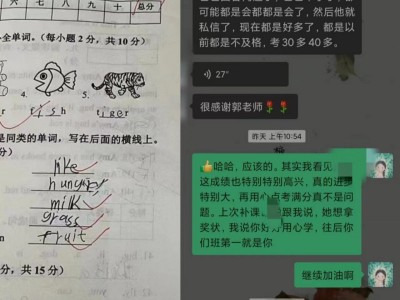 六 七 八 九 十 总分
全单词。(每小题2分，共10分)
4. 5.
fish tiger
是同类的单词，写在后面的横线上。
分)
like
hungry
milk
grass
fruit
分，共15分)
可能都是会都都是会了，然后他就
私信了，现在都是好多了，都是以
前都是不及格，考30多40多。
27"
很感谢郭老师🌹🌹
昨天 上午10:54
👍哈哈，应该的。其实我看见
这成绩也特别特别高兴，真的进步
特别大，再用心点考满分真不是问
题。上次补课，跟我说，她想拿
奖状，我说你好好用心学，往后你
们班第一就是你
继续加油啊